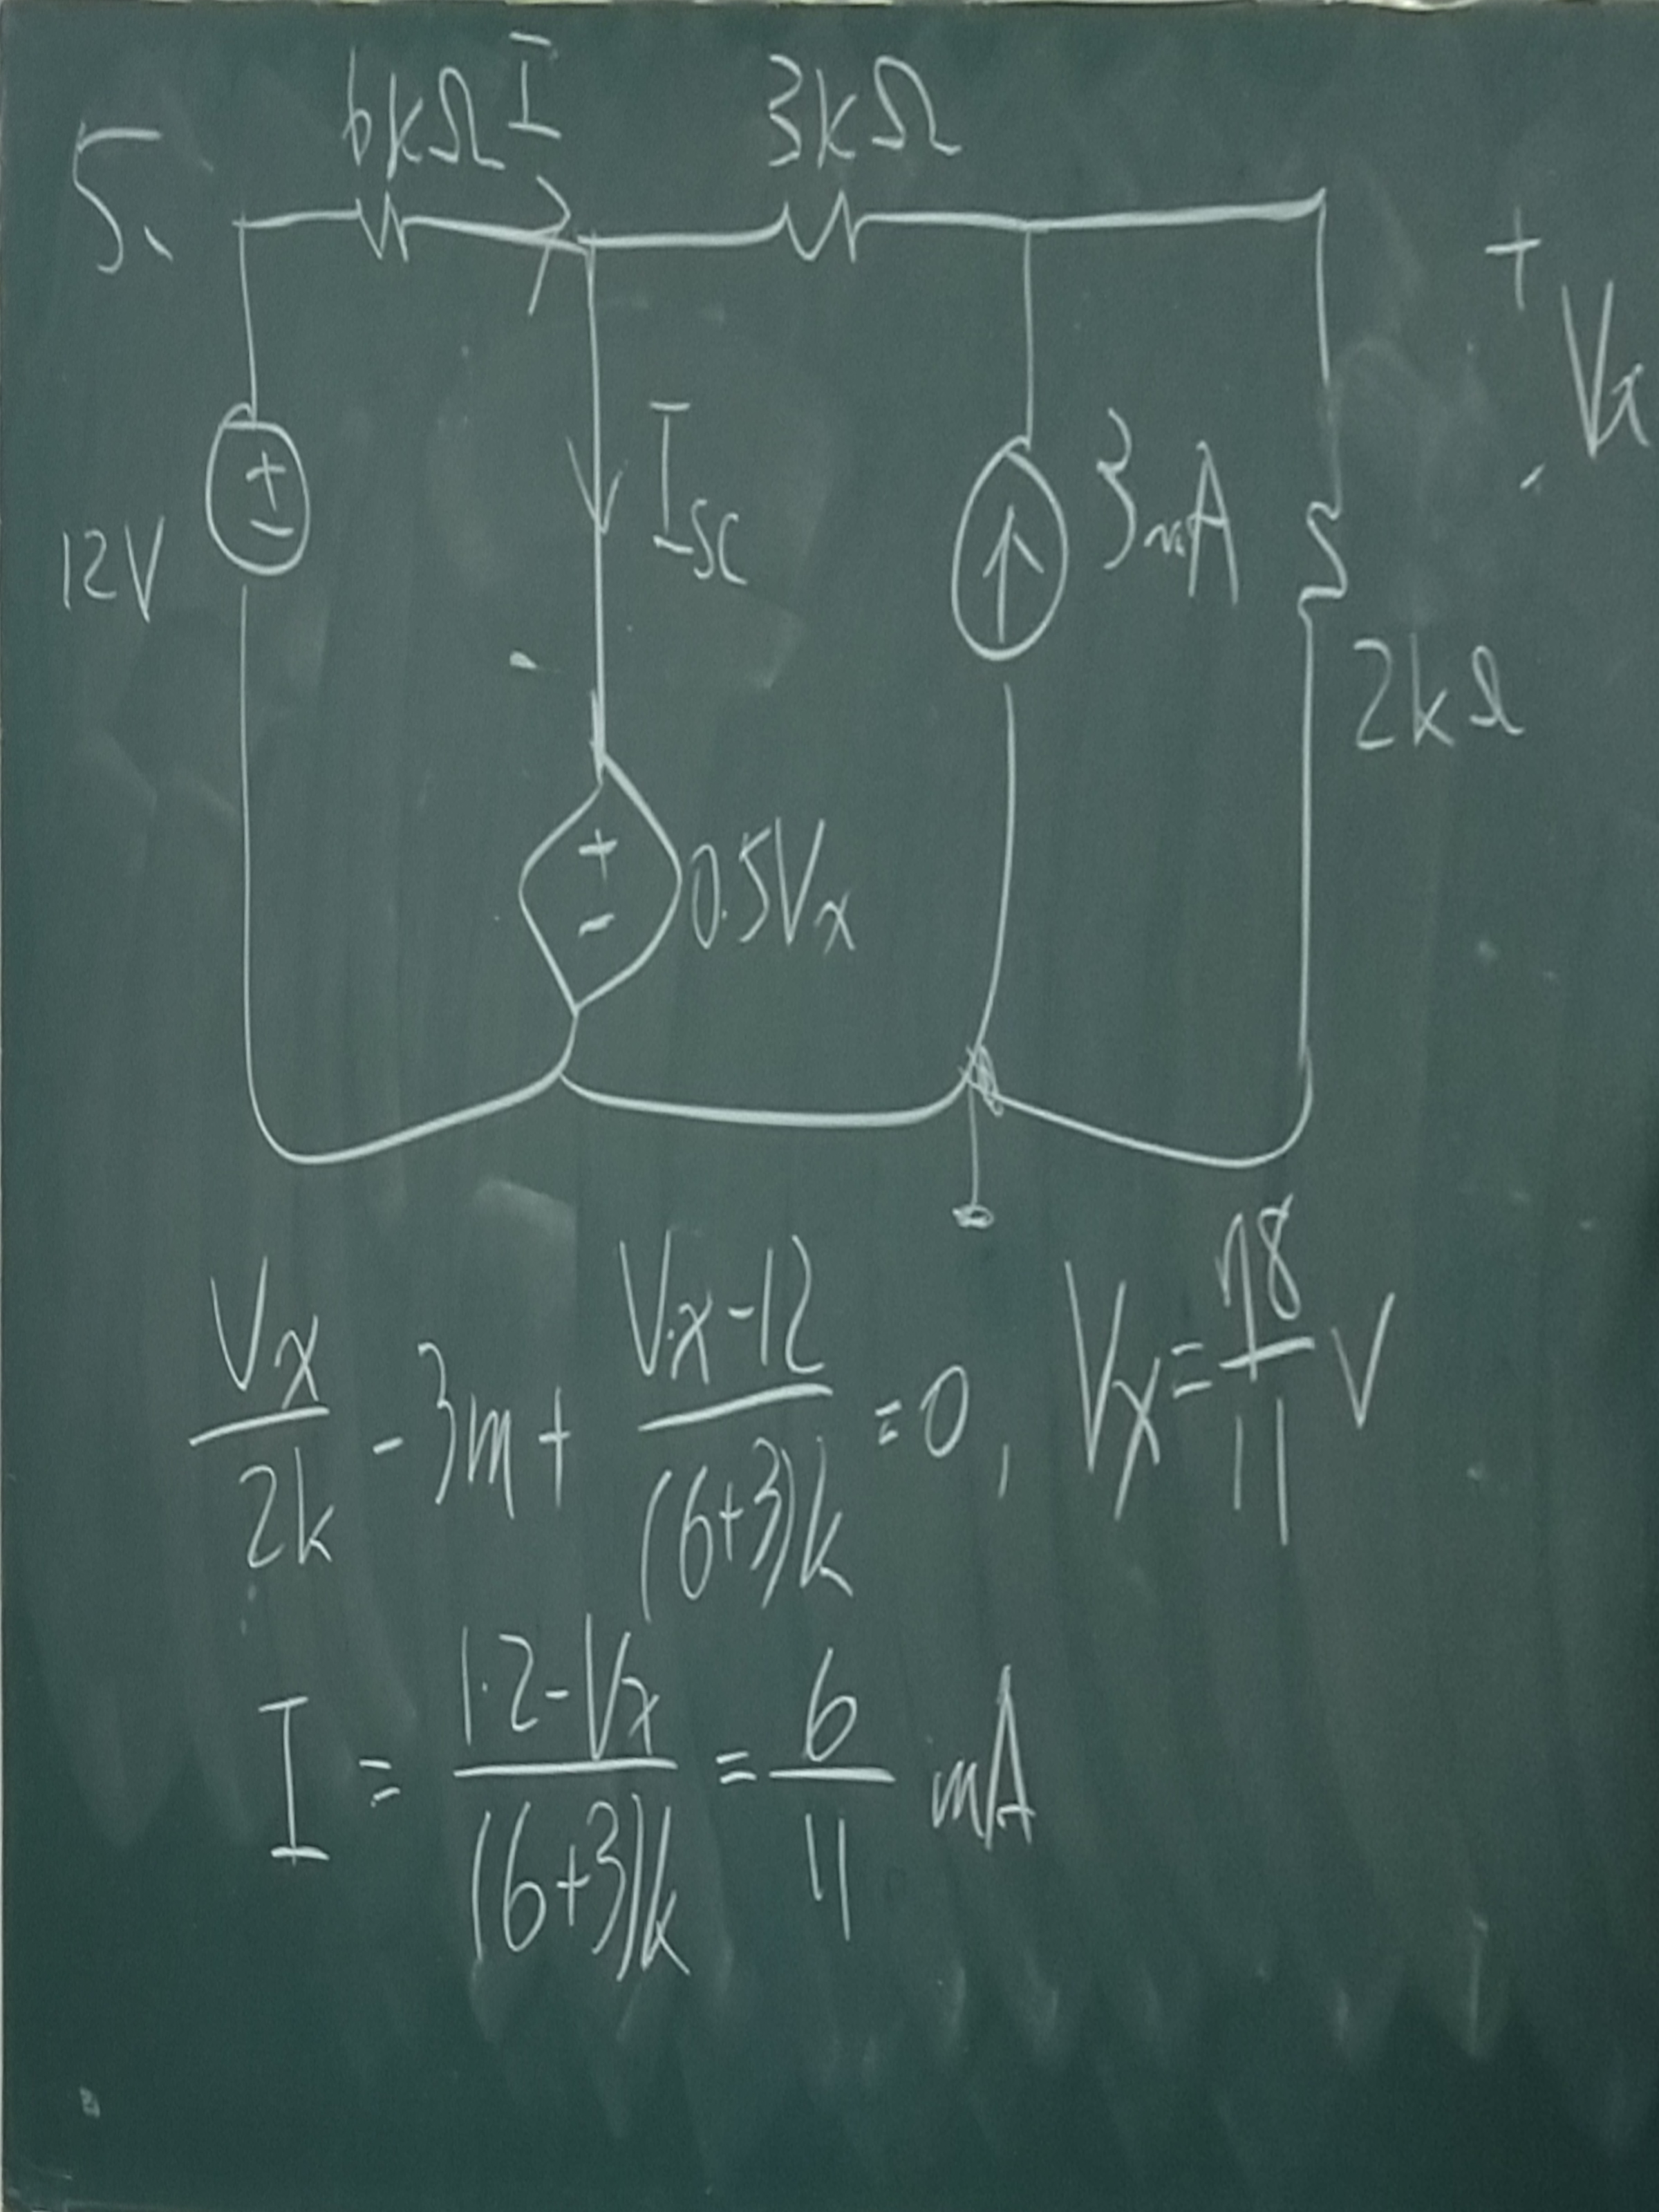 5.
6kΩ I 3kΩ
+
Vx
-
12V
+
-
Isc
3mA
2kΩ
-
+
-
0.5Vx
Vx/2k - 3m + Vx-12/(6+3)k = 0, Vx = 78/11 V
I = 1.2-Vx/(6+3)k = 6/11 mA